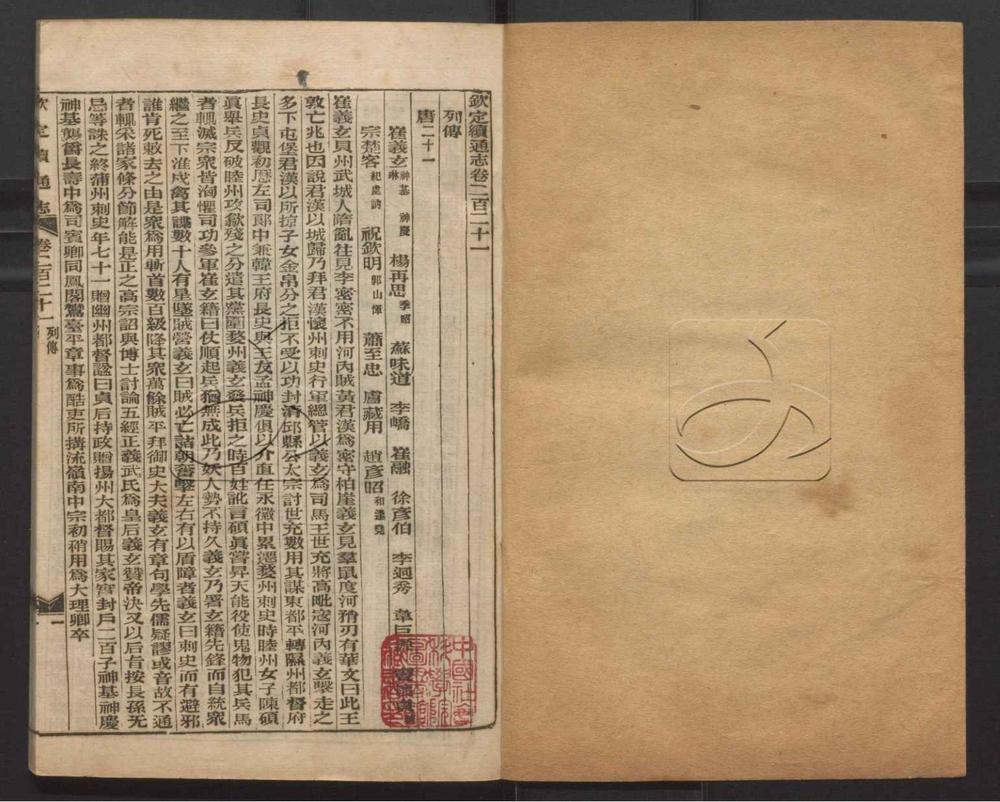 欽定續通志卷二百二十一
列傳
唐二十一
崔義玄 神基 神慶 琳 楊再思 季昭 蘇味道 李嶠 崔融 徐彥伯 李迥秀 韋巨源
宗楚客 紀處訥 祝欽明 郭山惲 蕭至忠 盧藏用 趙彥昭 和逢堯
崔義玄貝州武城人隋亂往見李密密不用河內賊黃君漢為密守柏崖義玄見羣鼠度河矟刃有華文曰此王
敦亡兆也因說君漢以城歸乃拜君漢懷州刺史行軍總管以義玄為司馬王世充將高毗寇河內義玄擊走之
多下屯堡君漢以所掠子女金帛分之拒不受以功封清邱縣公太宗討世充數用其謀東都平轉隰州都督府
長史貞觀初歷左司郎中兼韓王府長史與王友孟神慶俱以介直任永徽中累遷婺州刺史時睦州女子陳碩
真舉兵反破睦州攻歙殘之分遣其黨圍婺州義玄發兵拒之時百姓訛言碩真嘗昇天能役使鬼物犯其兵馬
者輒滅宗衆皆洶懼司功參軍崔玄籍曰仗順起兵猶無成此乃妖人勢不持久義玄乃署玄籍先鋒而自統衆
繼之至下淮戍禽其諜數十人有星墜賊營義玄曰賊必亡詰朝奮擊左右有以盾障者義玄曰刺史而有避邪
誰肯死敕去之由是衆為用斬首數百級降其衆萬餘賊平拜御史大夫義玄有章句學先儒疑謬或音故不通
者輒采諸家條分節解能是正之高宗詔與博士討論五經正義武氏為皇后義玄贊帝決又以后旨按長孫无
忌等誅之終蒲州刺史年七十一贈幽州都督諡曰貞后持政贈揚州大都督賜其家實封戶二百子神基神慶
神基襲爵長壽中為司賓卿同鳳閣鸞臺平章事為酷吏所搆流嶺南中宗初稍用為大理卿卒
欽定續通志 卷二百二十一 列傳 一